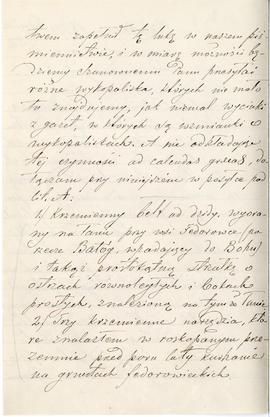 twem zapełnić tę lukę w naszem piś-
miennictwie, i w miarę możności bę-
dziemy Szanownemu Panu przesyłać
różne wykopaliska, których nie mało
tu znajdujemy, jak niemal wycinki
z gazet, w których są wzmianki o
wykopaliskach. A nie odkładając
tej czynności ad calendas graecas, do-
łączam przy niniejszem w posyłce pod
lit. A:
1) Krzemienny bełt od dzidy, wyora-
ny na łanie przy wsi Fedorówce, po-
rzece Batóg, wpadającej do Bohu
i takąż prostokątną sztukę o
ostrzach równoległych i bokach
prostych, znalezioną na tymże łanie
2) Trzy krzemienne narzędzia, któ-
re znalazłem w rozkopanym prze-
zemnie przed paru laty kurhanie
na gruntach fedorowieckich.